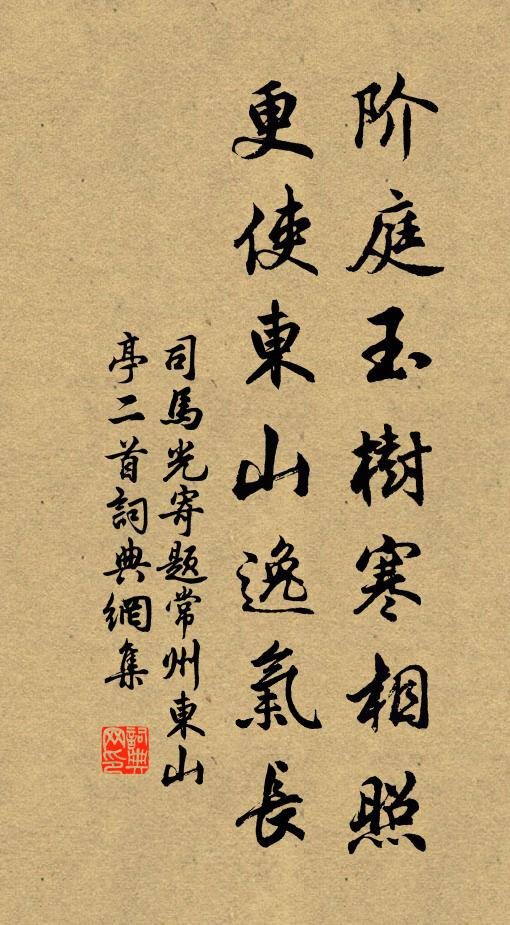 阶庭玉樹寒相照
更使東山逸氣長
司馬光寄题常州東山
亭二首詞典網集
詞典
网印